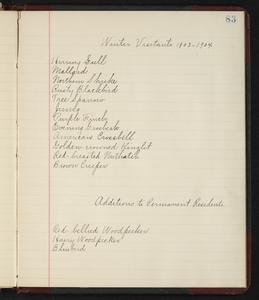 83
Winter Visitants. 1903-1904
Herring Gull
Mallard
Northern Shrike
Rusty Blackbird
Tree Sparrow
Junco
Purple Finch
Evening Grosbeak
American Crossbill
Golden-crowned Kinglet
Red-breasted Nuthatch
Brown Creeper
Additions to Permanent Residents
Red-bellied Woodpecker
Hairy Woodpecker
Bluebird